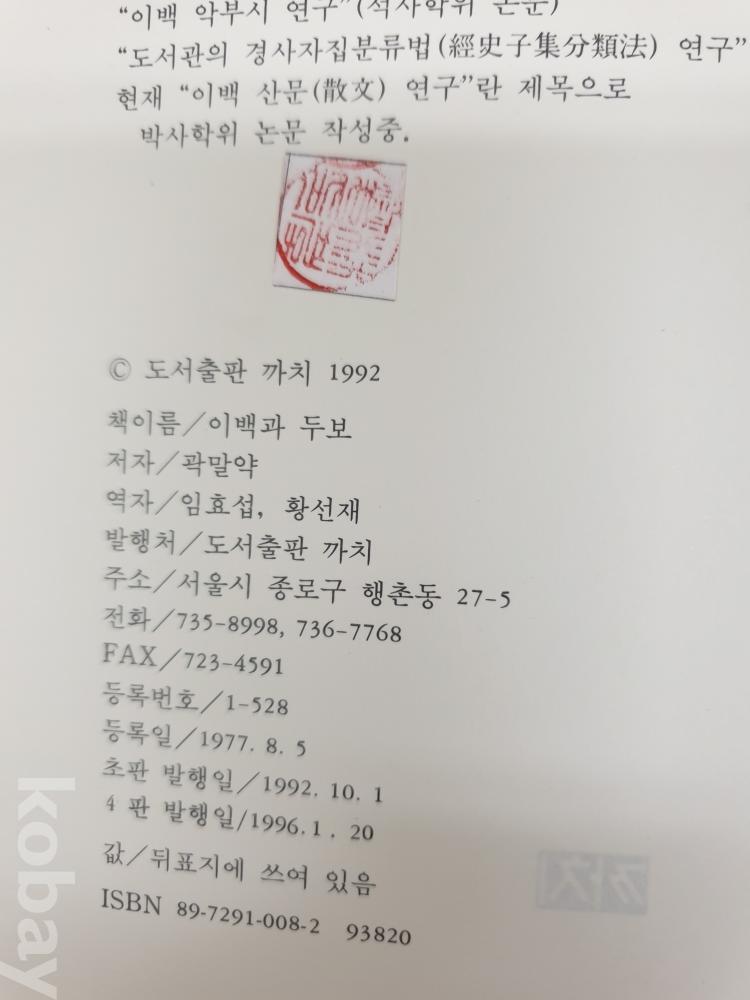 "이백 악부시 연구"(석사학위 논문)
"도서관의 경사자집분류법(經史子集分類法) 연구"
현재 "이백 산문(散文) 연구"란 제목으로
박사학위 논문 작성중.
© 도서출판 까치 1992
책이름/이백과 두보
저자/곽말약
역자/임효섭, 황선재
발행처/도서출판 까치
주소/서울시 종로구 행촌동 27-5
전화/735-8998, 736-7768
FAX/723-4591
등록번호/1-528
등록일/1977. 8. 5
초판 발행일/1992. 10. 1
4 판 발행일/1996. 1. 20
값/뒤표지에 쓰여 있음
ISBN 89-7291-008-2 93820
kobay